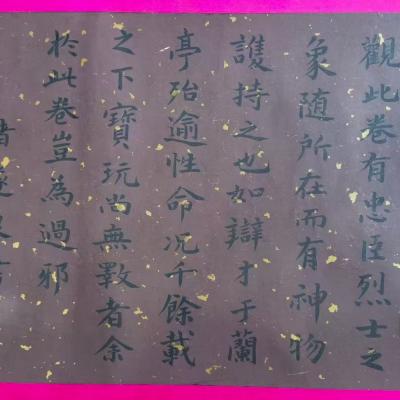 觀此卷有忠臣烈士之
象随所在而有神物
護持之也如辯才于蘭
亭殆逾性命况千餘載
之下寶玩尚無斁者余
於此卷豈為過邪